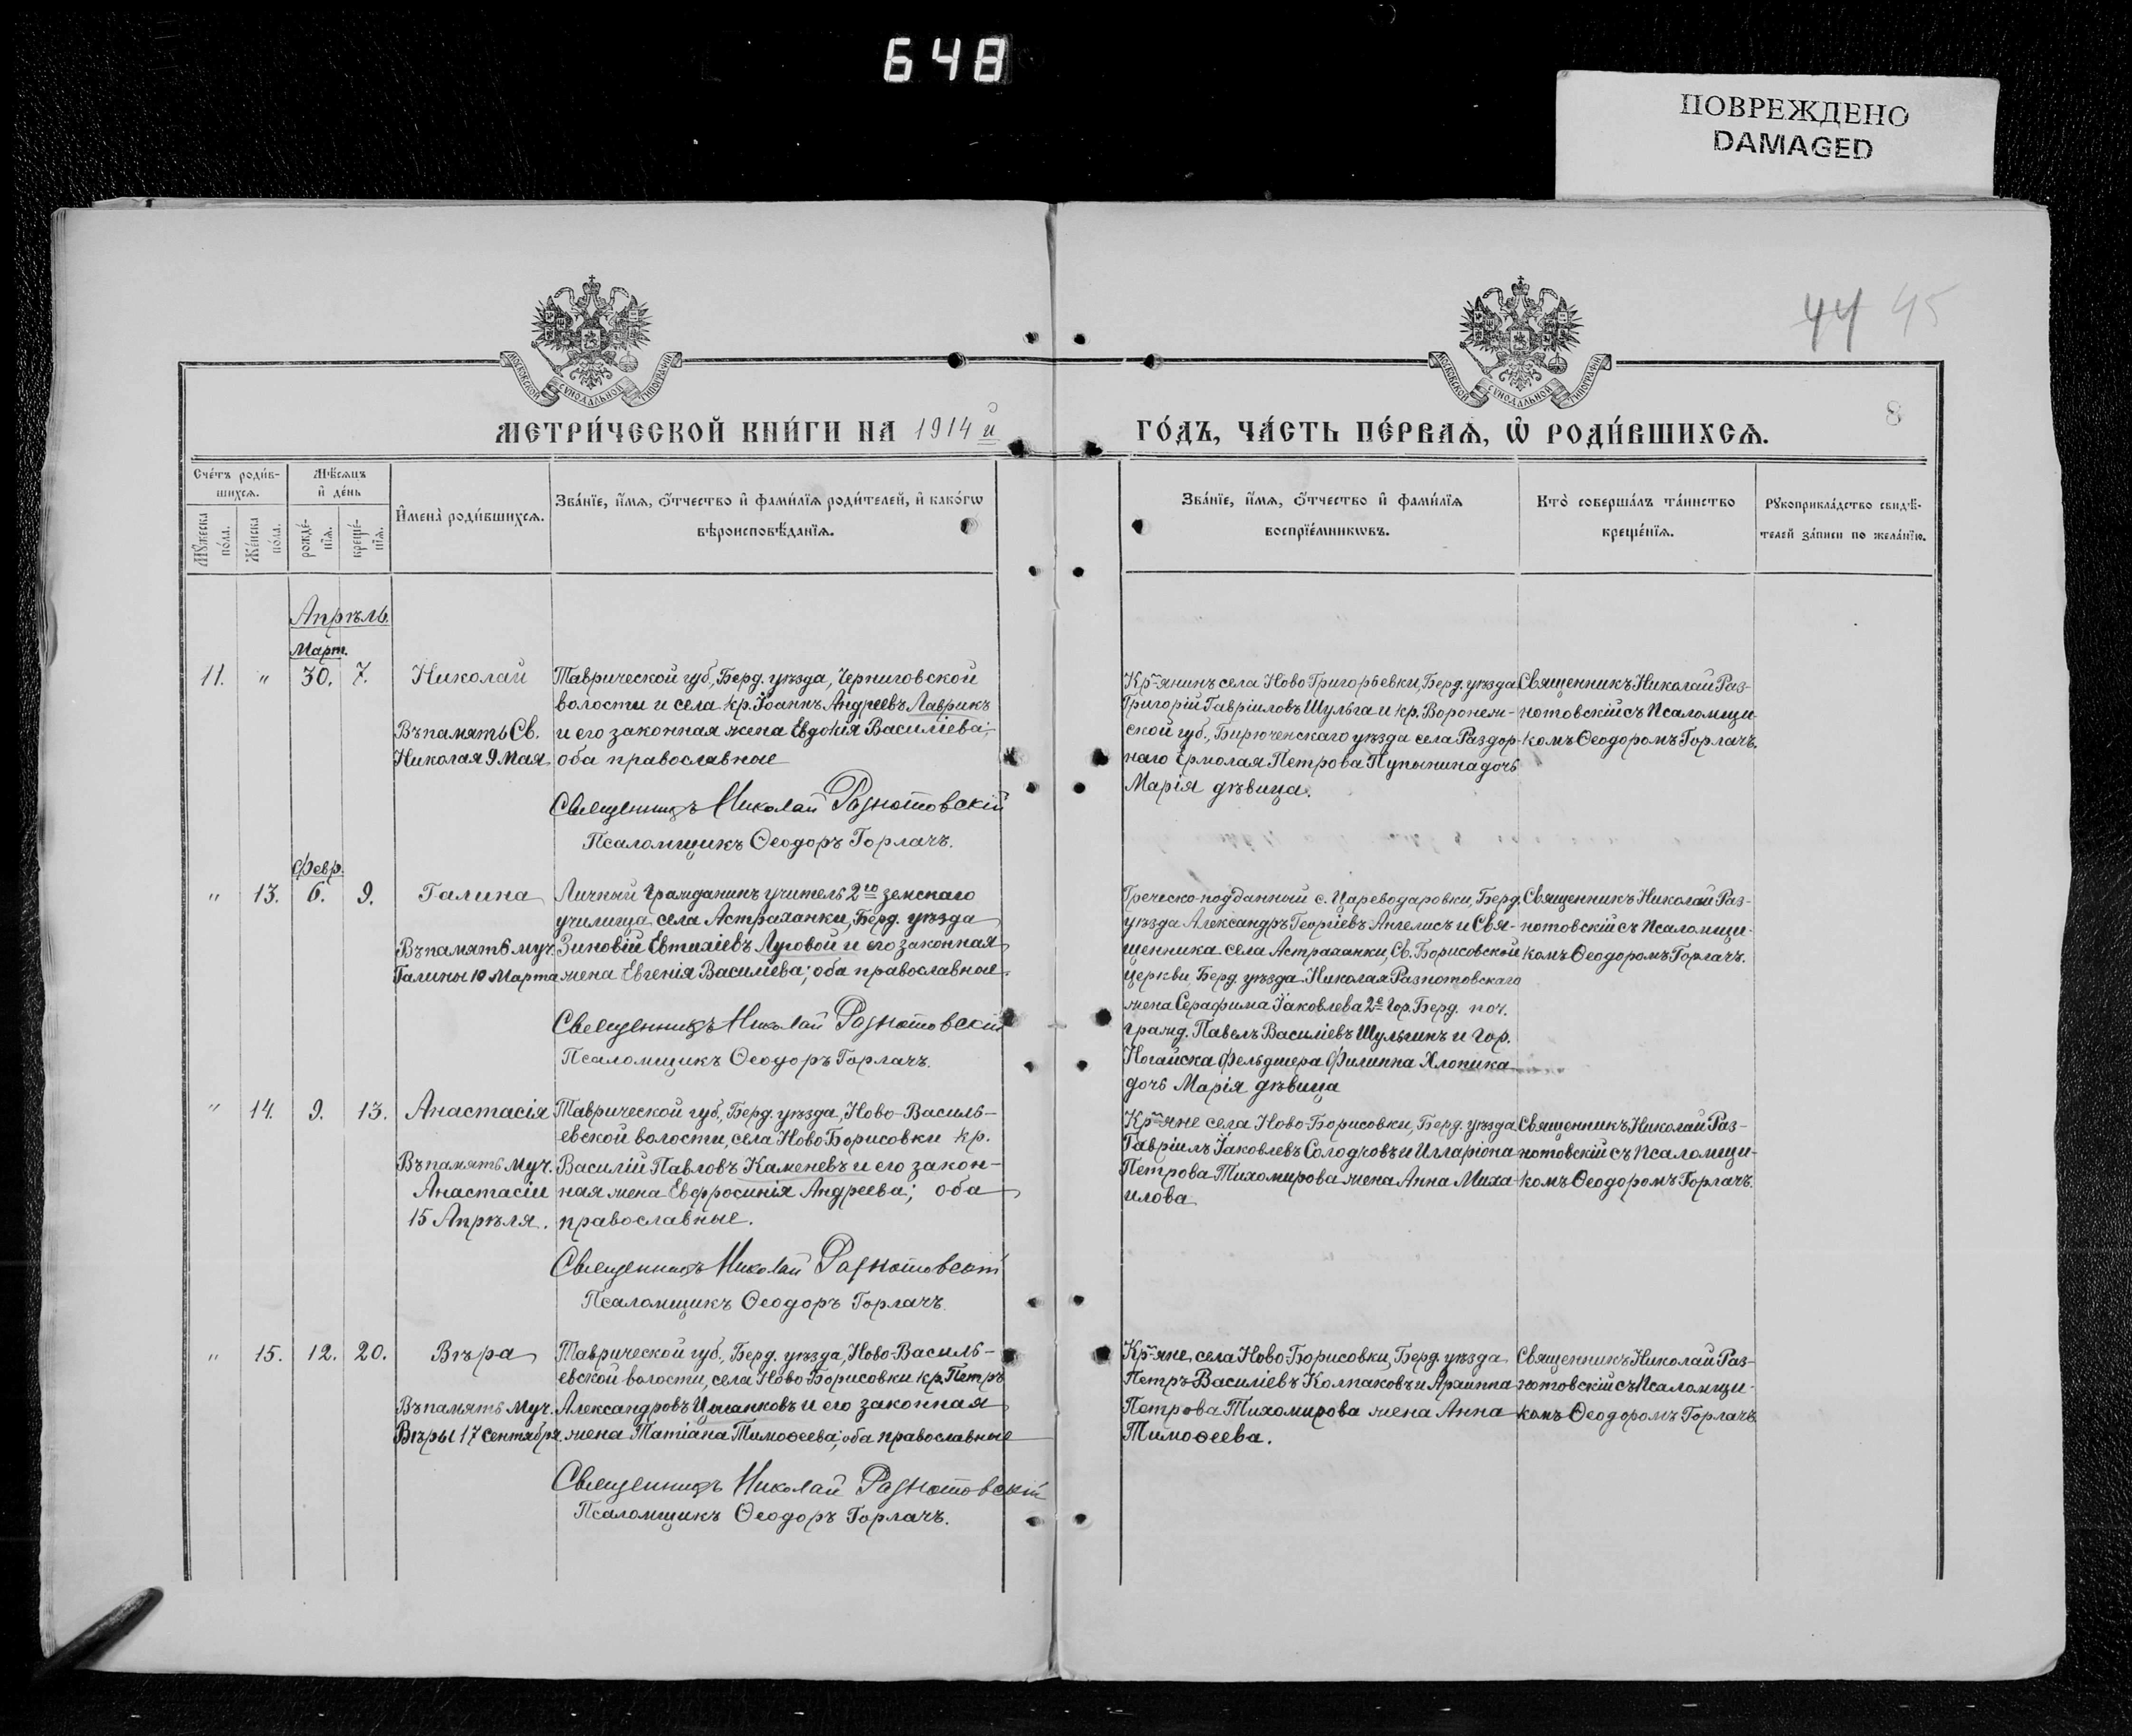 648
ПОВРЕЖДЕНО
DAMAGED
44 45
8
МОСКОВСКОЙ СѴНОДАЛЬНОЙ ТИПОГРАФІИ
МОСКОВСКОЙ СѴНОДАЛЬНОЙ ТИПОГРАФІИ
МЕТРИ́ЧЕСКОЙ КНИ́ГИ НА 1914 й
ГО́ДЪ, ЧА́СТЬ ПЕ́РВАѦ, Ѡ҆ РОДИ́ВШИХСѦ.
Сче́тъ роди́в-
шихсѧ.
Мꙋ́жеска
по́ла.
Же́нска
по́ла.
Мѣ́сѧцъ
и҆ де́нь
рожде́-
нїѧ.
креще́-
нїѧ.
И҆мена̀ роди́вшихсѧ.
Зва́нїе, и҆́мѧ, ѻ҆́тчество и҆ фами́лїѧ роди́телей, и҆ како́гѡ
вѣроисповѣ́данїѧ.
Зва́нїе, и҆́мѧ, ѻ҆́тчество и҆ фами́лїѧ
воспрїе́мникѡвъ.
Кто̀ соверша́лъ та́инство
креще́нїѧ.
Рꙋкоприкла́дство свидѣ́-
телей за́писи по жела́нїю.
Апрѣль.
Март.
11. " 30. 7. Николай
Въ память Св.
Николая 9 Мая.
Таврической губ., Берд. уѣзда, Черниговской
волости и села кр. Іоаннъ Андреевъ Лаврикъ
и его законная жена Евдокія Василіева;
оба православные
Священникъ Николай Разнотовскій
Псаломщикъ Ѳеодоръ Горлачъ.
Кр-янинъ села Ново Григорьевки, Берд. уѣзда
Григорій Гавріиловъ Шульга и кр. Воронеж-
ской губ., Бирюченскаго уѣзда села Раздор-
наго Ермолая Петрова Пупынина дочь
Марія дѣвица.
Священникъ Николай Раз-
нотовскій съ Псаломщи-
комъ Ѳеодоромъ Горлачъ.
Февр.
" 13. 6. 9. Галина
Въ память муч.
Галины 10 Марта
Личный Гражданинъ учитель 2го земскаго
училища села Астраханки, Берд. уѣзда
Зиновій Евтихіевъ Луговой и его законная
жена Евгенія Василіева; оба православные.
Священникъ Николай Разнотовскій
Псаломщикъ Ѳеодоръ Горлачъ.
Греческо-подданный с. Цареводаровки, Берд.
уѣзда Александръ Георгіевъ Ангелисъ и Свя-
щенника села Астраханки, Св. Борисовской
церкви Берд. уѣзда Николая Разнотовскаго
жена Серафима Іаковлева 2е Гор. Берд. поч.
гражд. Павелъ Василіевъ Шульгинъ и Гор.
Ногайска фельдшера Филиппа Хлопика
дочь Марія дѣвица
Священникъ Николай Раз-
нотовскій съ Псаломщи-
комъ Ѳеодоромъ Горлачъ.
" 14. 9. 13. Анастасія
Въ память Муч.
Анастасіи
15 Апрѣля.
Таврической губ., Берд. уѣзда, Ново-Василь-
евской волости, села Ново Борисовки кр.
Василій Павловъ Каменевъ и его закон-
ная жена Евфросинія Андреева; оба
православные.
Священникъ Николай Разнотовскій
Псаломщикъ Ѳеодоръ Горлачъ.
Кр-яне села Ново-Борисовки, Берд. уѣзда
Гавріилъ Іаковлевъ Солодковъ и Илларіона
Петрова Тихомирова жена Анна Миха-
илова
Священникъ Николай Раз-
нотовскій съ Псаломщи-
комъ Ѳеодоромъ Горлачъ.
" 15. 12. 20. Вѣра
Въ память Муч.
Вѣры 17 Сентября
Таврической губ., Берд. уѣзда, Ново-Василь-
евской волости, села Ново Борисовки кр. Петръ
Александровъ и его законная
жена Татіана Тимоѳеева; оба православные
Священникъ Николай Разнотовскій
Псаломщикъ Ѳеодоръ Горлачъ.
Кр-яне села Ново-Борисовки, Берд. уѣзда
Петръ Василіевъ Колпаковъ и Архиппа
Петрова Тихомирова жена Анна
Тимоѳеева.
Священникъ Николай Раз-
нотовскій съ Псаломщи-
комъ Ѳеодоромъ Горлачъ